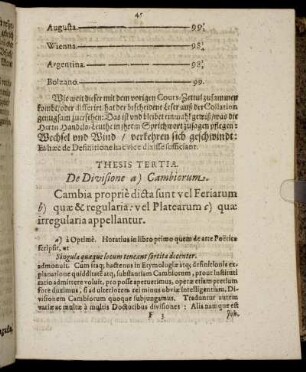 45
Augusta. 99¼
Wienna. 98¼
Argentina. 98¼
Bolzano. 99.
Wie weit dieser mit dem vorigen Cours-Zettul zusammen
kombt, oder differirt, hat der bescheidene Leser auß der Collation
genugsam zuersehen: Das ist und bleibet einmahl gewiß, was die
Herrn Handels-Leuthe in ihrem Sprichwort zusagen pflegen:
Wechsel und Wind / verkehren sich geschwind:
Et hæc de Definitione hac vice dixisse sufficiant.
THESIS TERTIA.
De Divisione a) Cambiorum.
Cambia propriè dicta sunt vel Feriarum
b) quæ & regularia: vel Platearum c) quæ
irregularia appellantur.
a) à Optimè. Horatius in libro primo quem de arte Poëtica
scripsit, ut
Singula quæque locum teneant sortita decenter.
admonuit. Cum itaq; hactenus in Etymologiæ
planatione quidditatē atq; substantiam Cambiorum, prout instituti
ratio admittere voluit, pro posse aperuerimus, operæ etiam pretium
fore duximus, si ad ulteriorem rei minus obviæ intelligentiam, Di-
visionem Cambiorum quoque subjungamus. Traduntur autem
variæ ac multæ à multis Doctoribus divisiones: Alia namque est
F 3